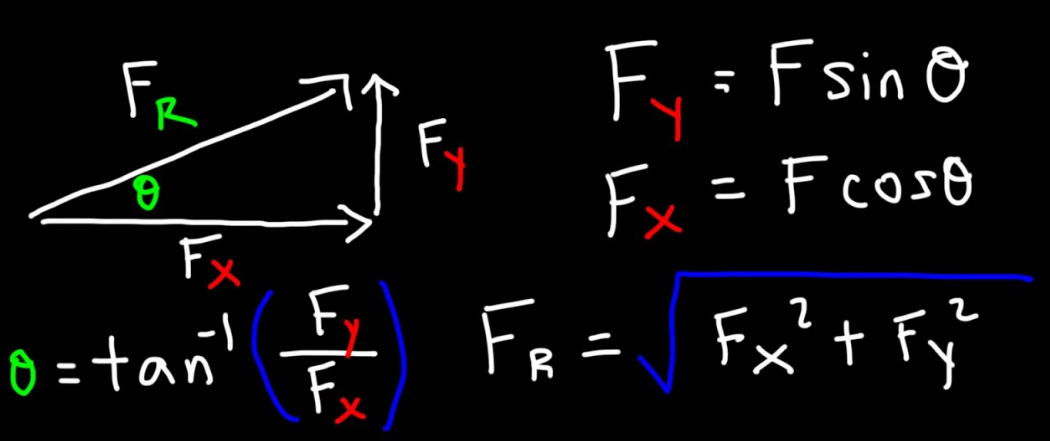 F_R
θ
F_y
F_x
F_y = F sin θ
F_x = F cos θ
θ = tan⁻¹ (F_y / F_x)
F_R = √(F_x² + F_y²)